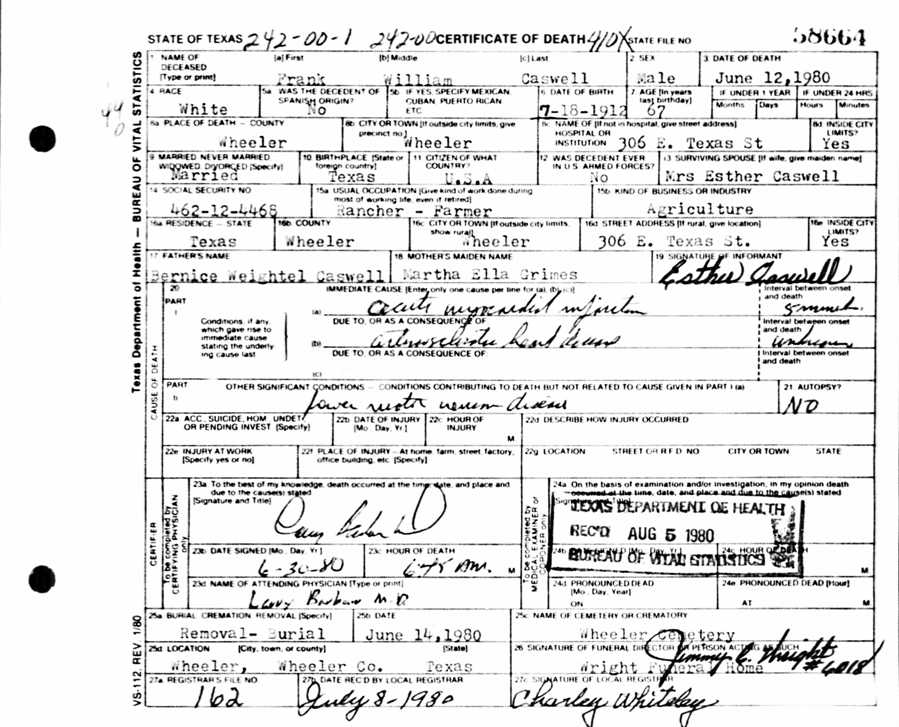 58664
STATE OF TEXAS 242-00-1 242-00 CERTIFICATE OF DEATH 410X STATE FILE NO
1 NAME OF DECEASED [Type or print] [a] First [b] Middle [c] Last 2 SEX 3 DATE OF DEATH
Frank William Caswell Male June 12,1980
4 RACE 5a WAS THE DECEDENT OF SPANISH ORIGIN? 5b IF YES, SPECIFY MEXICAN, CUBAN, PUERTO RICAN ETC 6 DATE OF BIRTH 7 AGE [In years last birthday] IF UNDER 1 YEAR IF UNDER 24 HRS
Months Days Hours Minutes
White No 7-18-1912 67
8a PLACE OF DEATH - COUNTY 8b CITY OR TOWN [If outside city limits, give precinct no] 8c NAME OF [If not in hospital, give street address] HOSPITAL OR INSTITUTION 8d INSIDE CITY LIMITS?
Wheeler Wheeler 306 E. Texas St Yes
9 MARRIED NEVER MARRIED WIDOWED DIVORCED [Specify] 10 BIRTHPLACE [State or foreign country] 11 CITIZEN OF WHAT COUNTRY? 12 WAS DECEDENT EVER IN U.S. ARMED FORCES? 13 SURVIVING SPOUSE [If wife, give maiden name]
Married Texas U.S.A No Mrs Esther Caswell
14 SOCIAL SECURITY NO 15a USUAL OCCUPATION [Give kind of work done during most of working life, even if retired] 15b KIND OF BUSINESS OR INDUSTRY
462-12-4468 Rancher - Farmer Agriculture
16a RESIDENCE - STATE 16b COUNTY 16c CITY OR TOWN [If outside city limits, show rural] 16d STREET ADDRESS [If rural, give location] 16e INSIDE CITY LIMITS?
Texas Wheeler Wheeler 306 E. Texas St. Yes
17 FATHER'S NAME 18 MOTHER'S MAIDEN NAME 19 SIGNATURE OF INFORMANT
Bernice Weightel Caswell Martha Ella Grimes Esther Caswell
20 IMMEDIATE CAUSE [Enter only one cause per line for (a), (b), (c)] Interval between onset and death
PART I (a) acute myocardial infarction 5 minutes
Conditions, if any, which gave rise to immediate cause stating the underlying cause last
DUE TO, OR AS A CONSEQUENCE OF Interval between onset and death
(b) arteriosclerotic heart disease unknown
DUE TO, OR AS A CONSEQUENCE OF: Interval between onset and death
(c)
PART II OTHER SIGNIFICANT CONDITIONS - CONDITIONS CONTRIBUTING TO DEATH BUT NOT RELATED TO CAUSE GIVEN IN PART I (a) 21 AUTOPSY?
lower motor neuron disease NO
22a ACC, SUICIDE, HOM, UNDET, OR PENDING INVEST [Specify] 22b DATE OF INJURY [Mo, Day, Yr] 22c HOUR OF INJURY M 22d DESCRIBE HOW INJURY OCCURRED
22e INJURY AT WORK [Specify yes or no] 22f PLACE OF INJURY - At home, farm, street, factory, office building, etc [Specify] 22g LOCATION STREET OR R F D NO CITY OR TOWN STATE
23a To the best of my knowledge, death occurred at the time, date, and place and due to the cause(s) stated [Signature and Title]
24a On the basis of examination and/or investigation, in my opinion death occurred at the time, date, and place and due to the cause(s) stated [Signature and Title]
TEXAS DEPARTMENT OF HEALTH
REC'D AUG 5 1980
BUREAU OF VITAL STATISTICS
23b DATE SIGNED [Mo, Day, Yr] 23c HOUR OF DEATH
6-30-80 6:45 AM.
23d NAME OF ATTENDING PHYSICIAN [Type or print] 24d PRONOUNCED DEAD [Mo, Day, Year] 24e PRONOUNCED DEAD [Hour]
Larry M.D. ON AT M
25a BURIAL CREMATION REMOVAL [Specify] 25b DATE 25c NAME OF CEMETERY OR CREMATORY
Removal- Burial June 14,1980 Wheeler Cemetery
25d LOCATION [City, town, or county] [State] 26 SIGNATURE OF FUNERAL DIRECTOR OR PERSON ACTING AS SUCH
Wheeler, Wheeler Co. Texas Wright Funeral Home Jimmy C. Wright #6018
27a REGISTRAR'S FILE NO 27b DATE REC'D BY LOCAL REGISTRAR 27c SIGNATURE OF LOCAL REGISTRAR
162 July 8-1980 Charley Whiteley
Texas Department of Health - BUREAU OF VITAL STATISTICS
VS-112, REV 1/80
CAUSE OF DEATH
CERTIFIER
To be completed by CERTIFYING PHYSICIAN only
To be completed by MEDICAL EXAMINER or CORONER only